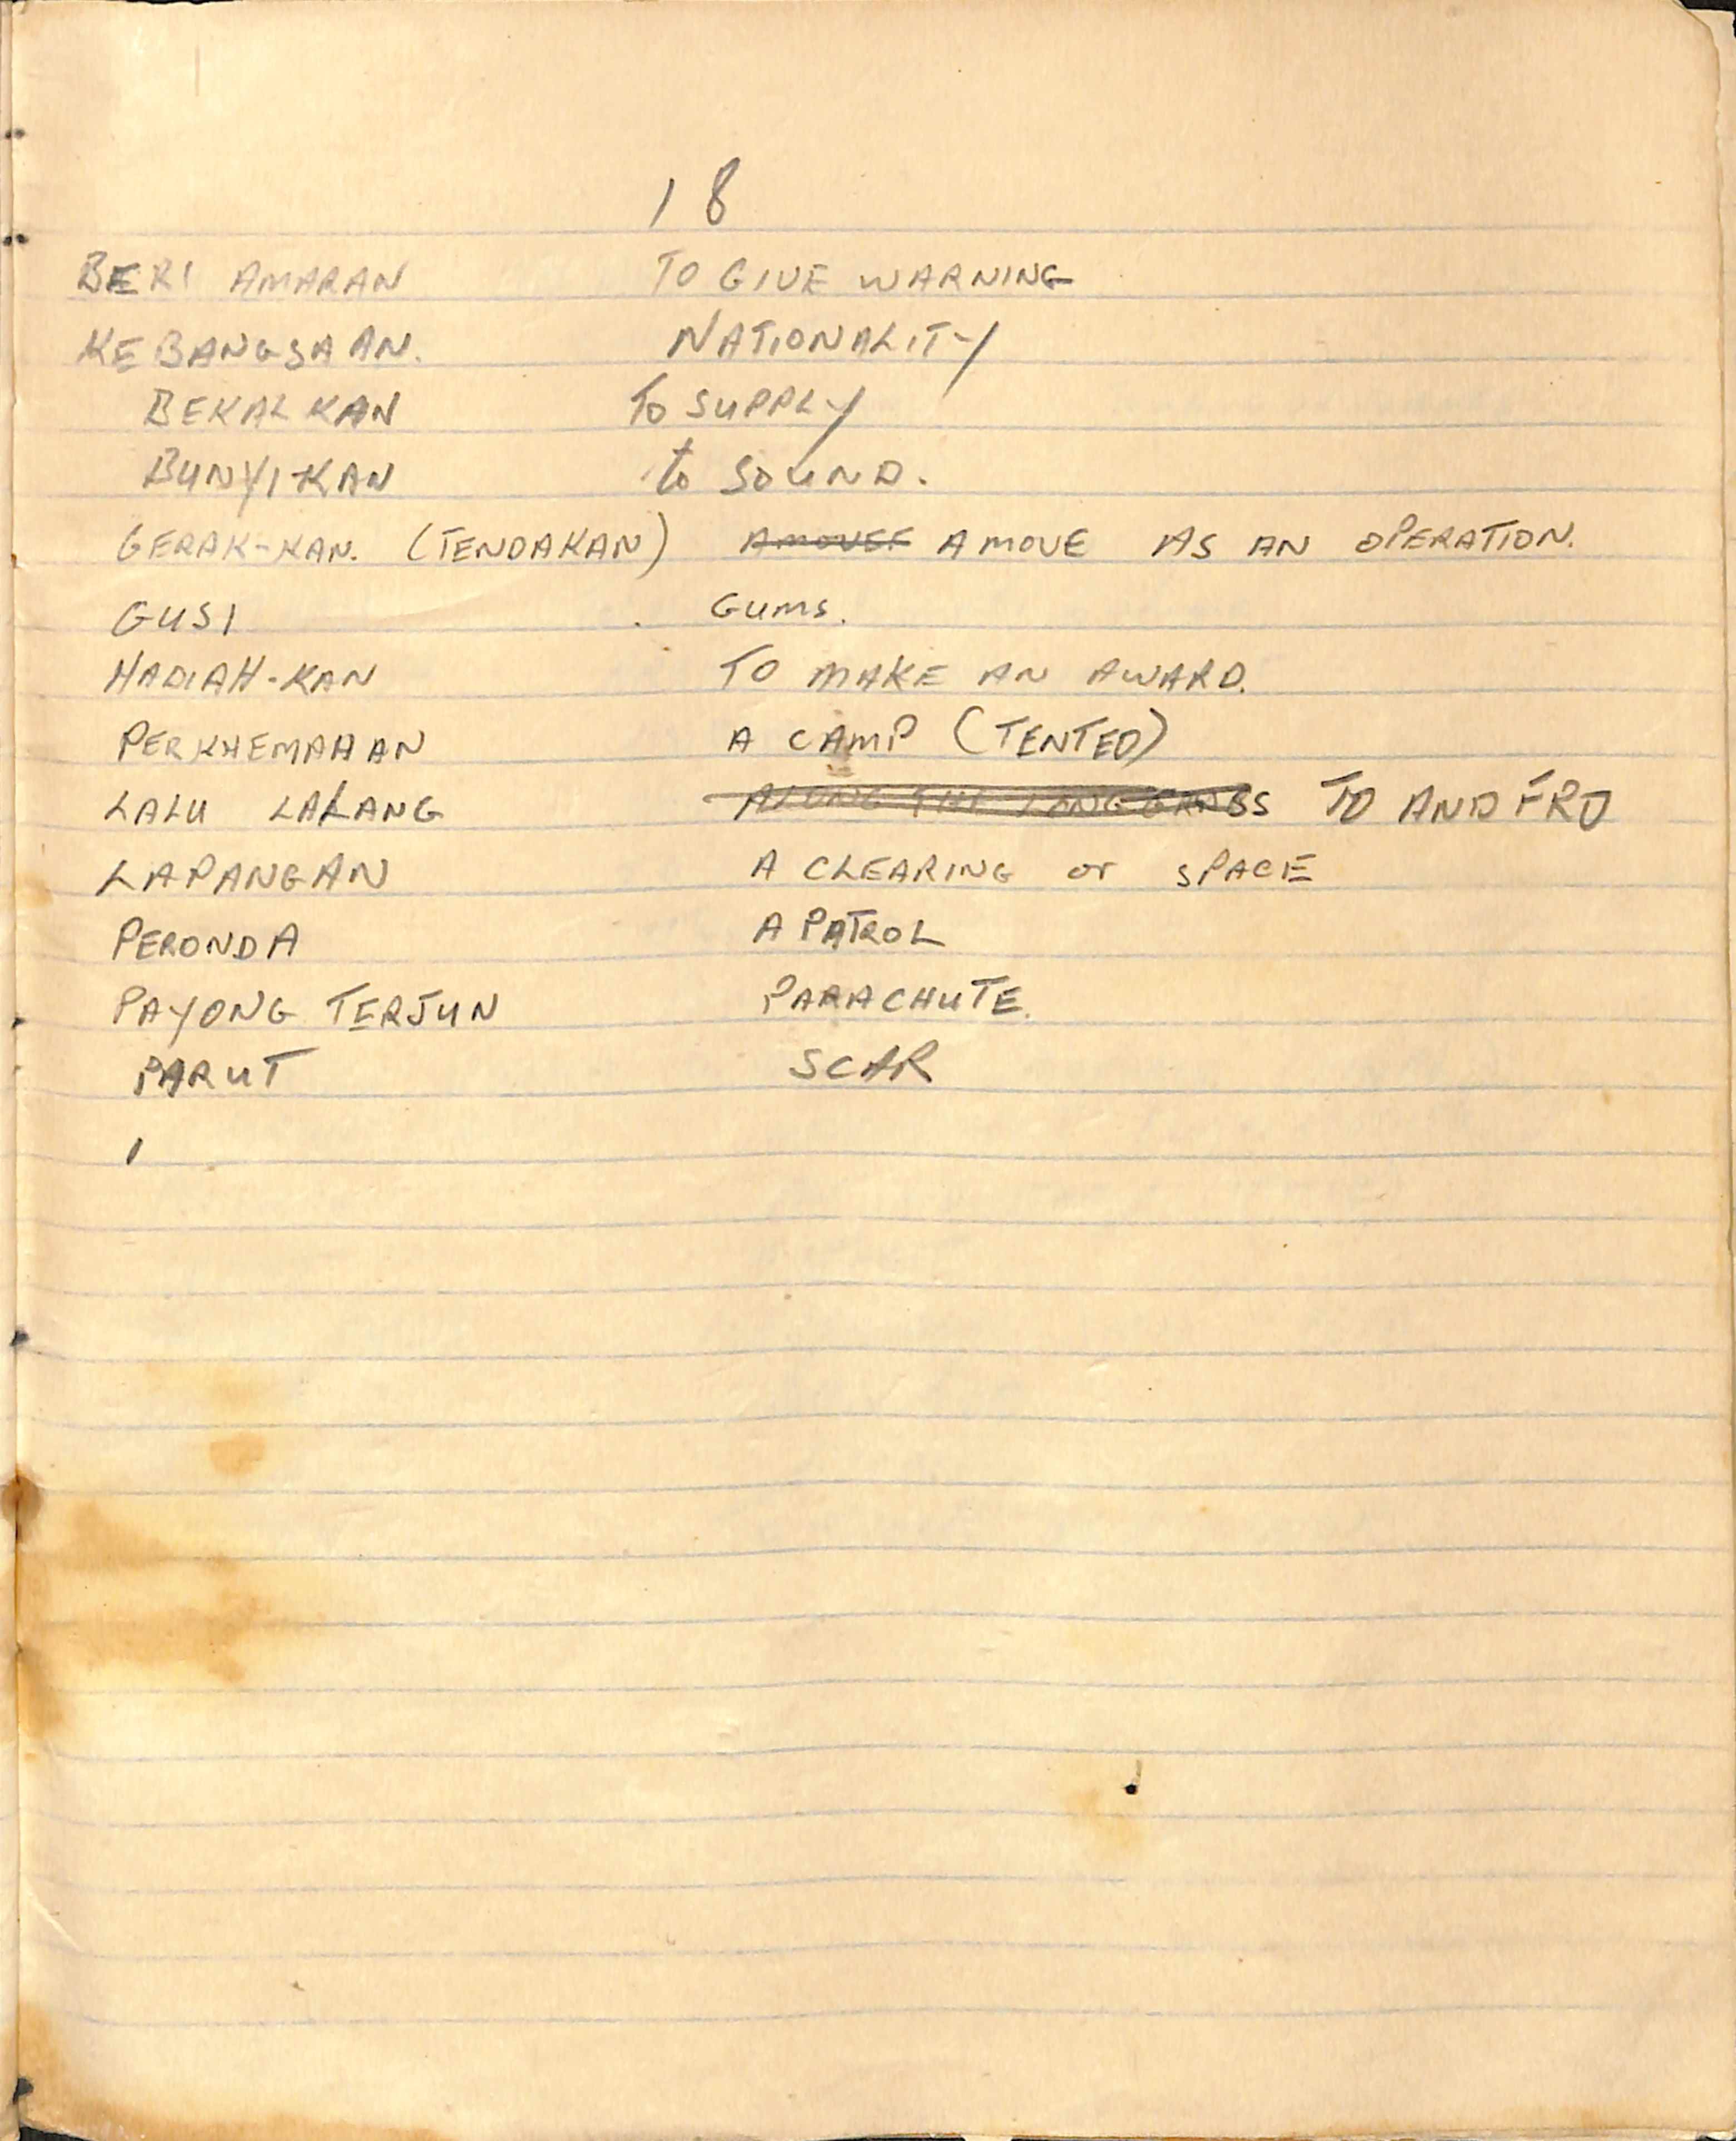 18
BERI AMARAN TO GIVE WARNING
KEBANGSAAN. NATIONALITY
BEKALKAN TO SUPPLY
BUNYI-KAN to SOUND.
GERAK-KAN. (TENDAKAN) A MOVE AS AN OPERATION.
GUSI GUMS.
HADIAH-KAN TO MAKE AN AWARD.
PERKHEMAHAN A CAMP (TENTED)
LALU LALANG ALONG THE LONG GRASS TO AND FRO
LAPANGAN A CLEARING or SPACE
PERONDA A PATROL
PAYONG TERJUN PARACHUTE.
PARUT SCAR